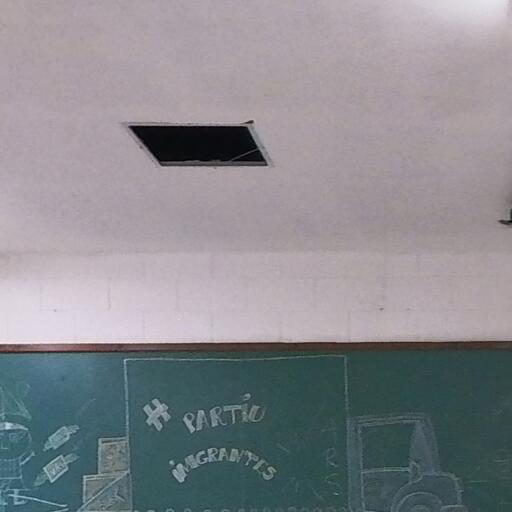 # PARTIU
iMIGRANTES